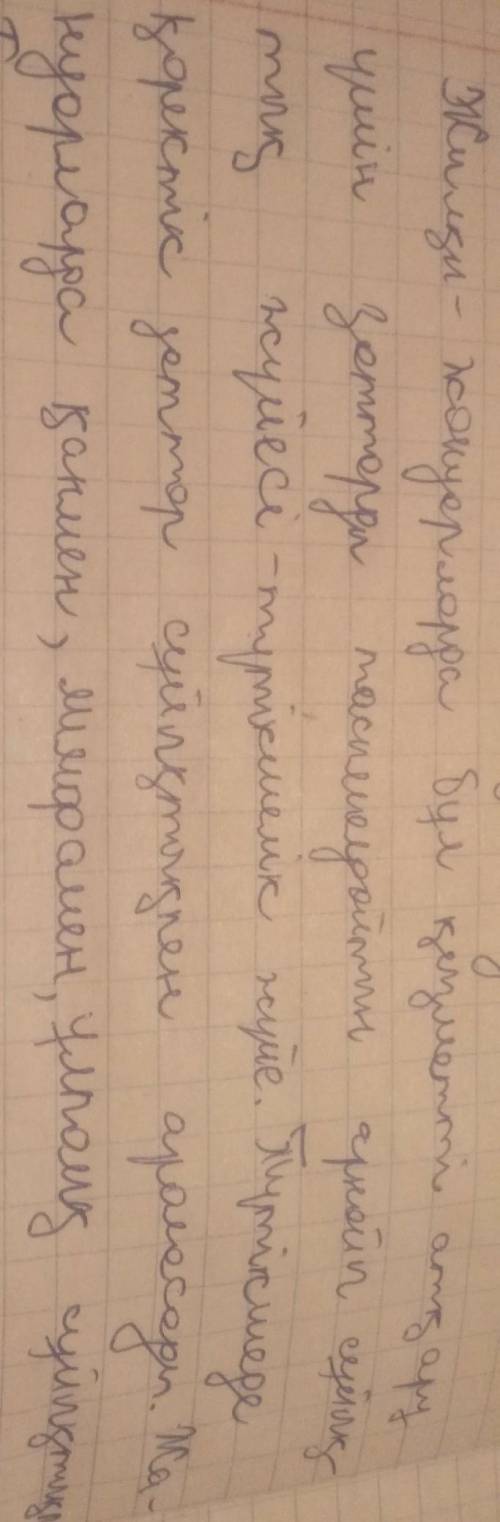 Жилқи - жануарларда бұл қызметті атқару
үшін заттарды тасымалдайтын арнайы сұйық
тық жүйесі - түтікшелік жүйе. Түтікшеде
қоректік заттар сұйықтықпен араласады. Жа-
нуарларда қанмен, лимфамен, ұлпалық сұйықтық